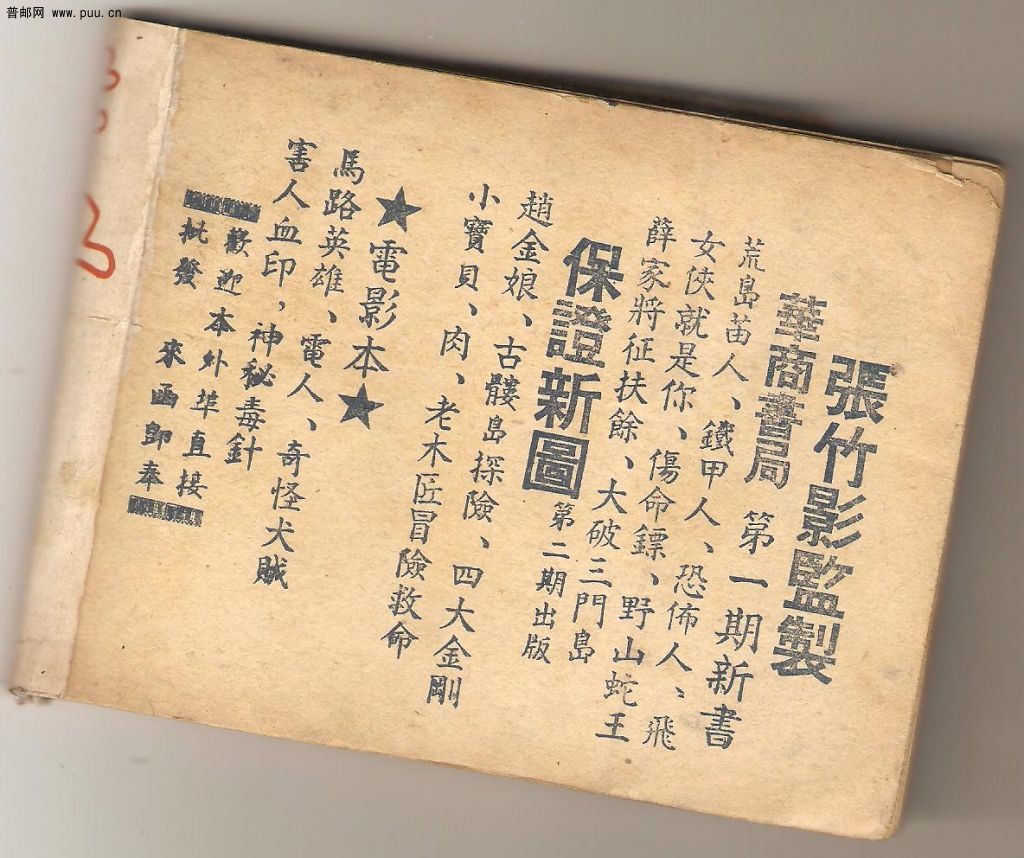 普邮网 www.puu.cn
張竹影監製
華商書局 第一期新書
荒島苗人、鐵甲人、恐佈人、飛
女俠就是你、傷命鏢、野山蛇王
薛家將征扶餘、大破三門島
保證新圖 第二期出版
趙金娘、古髏島探險、四大金剛
小寶貝、肉、老木匠冒險救命
★電影本★
馬路英雄、電人、奇怪犬賊
害人血印，神秘毒針
歡迎本外埠直接
批發 來函卽奉